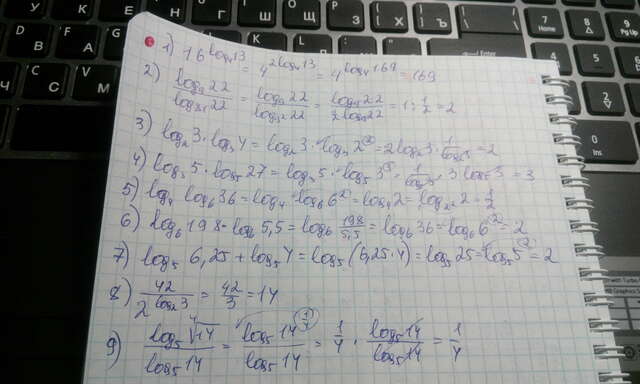 1) 16^{log_4 13} = 4^{2log_4 13} = 4^{log_4 169} = 169
2) \frac{log_9 22}{log_{81} 22} = \frac{log_9 22}{log_{9^2} 22} = \frac{log_9 22}{\frac{1}{2} log_9 22} = 1 : \frac{1}{2} = 2
3) log_2 3 · log_3 4 = log_2 3 · log_3 2^{2} = 2log_2 3 · \frac{1}{log_2 3} = 2
4) log_3 5 · log_5 27 = log_3 5 · log_5 3^{3} = \frac{1}{log_5 3} · 3 log_5 3 = 3
5) log_4 log_6 36 = log_4 log_6 6^{2} = log_4 2 = log_{2^2} 2 = \frac{1}{2}
6) log_6 198 - log_6 5,5 = log_6 \frac{198}{5,5} = log_6 36 = log_6 6^{2} = 2
7) log_5 6,25 + log_5 4 = log_5 (6,25 · 4) = log_5 25 = log_5 5^{2} = 2
8) \frac{42}{2^{log_2 3}} = \frac{42}{3} = 14
9) \frac{log_5 \sqrt[4]{14}}{log_5 14} = \frac{log_5 14^{\frac{1}{4}}}{log_5 14} = \frac{1}{4} · \frac{log_5 14}{log_5 14} = \frac{1}{4}